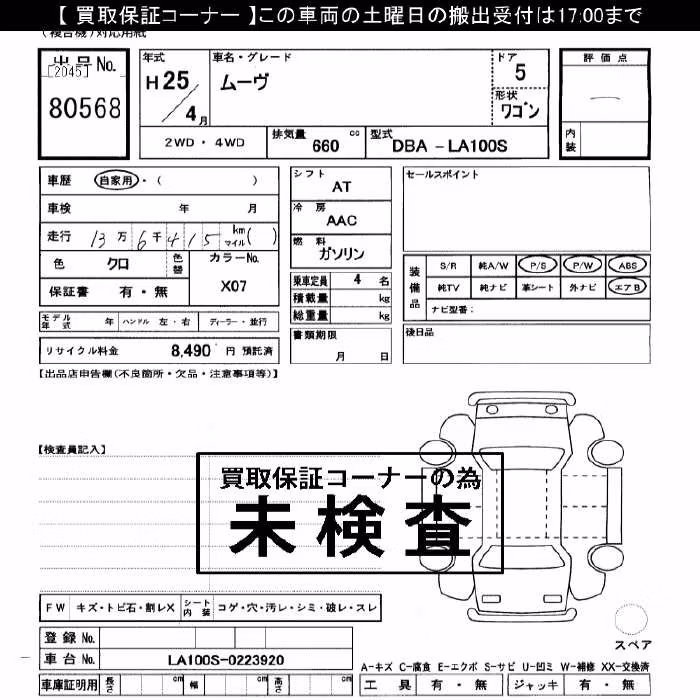 【 買取保証コーナー 】この車両の土曜日の搬出受付は17:00まで
(複合機)対応用紙
出品No.
[2045]
80568
年式
H25
/4月
車名・グレード
ムーヴ
ドア
5
形状
ワゴン
評価点
—
内装
2WD・4WD
排気量 660 cc
型式 DBA - LA100S
車歴 自家用・( )
車検 年 月
走行 13万6千415 km マイル( )
色 クロ
色替
カラーNo.
X07
保証書 有・無
シフト
AT
冷房
AAC
燃料
ガソリン
乗車定員 4 名
積載量 kg
総重量 kg
書類期限
月 日
セールスポイント
装備品
S/R 純A/W P/S P/W ABS
純TV 純ナビ 革シート 外ナビ エアB
ナビ型番:
後日品
モデル年式 年 ハンドル 左・右 ディーラー・並行
リサイクル料金 8,490 円 預託済
【出品店申告欄(不良箇所・欠品・注意事項等)】
【検査員記入】
買取保証コーナーの為
未検査
FW キズ・トビ石・割レX シート内装 コゲ・穴・汚レ・シミ・破レ・スレ
登録No.
車台No. LA100S-0223920
車庫証明用 長さ cm 幅 cm 高さ cm
スペア
A-キズ C-腐食 E-エクボ S-サビ U-凹ミ W-補修 XX-交換済
工具 有・無 ジャッキ 有・無